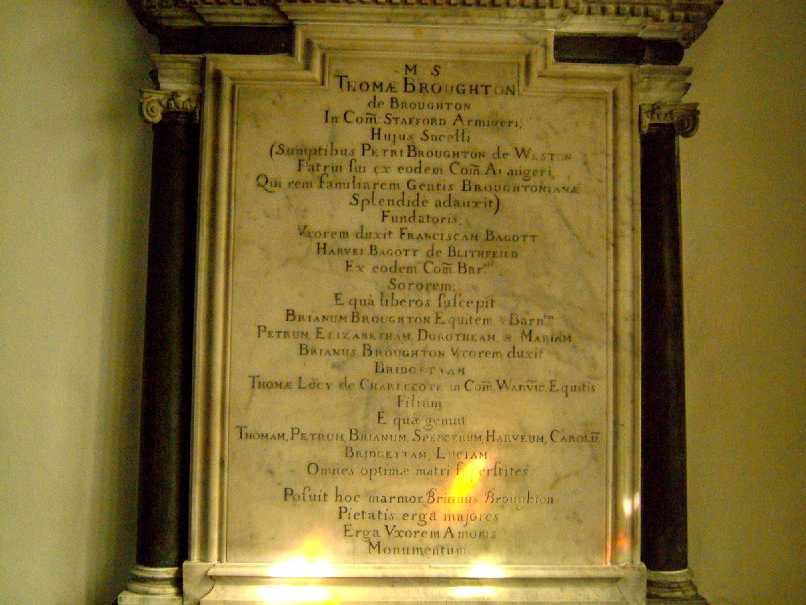 M S
THOMÆ BROUGHTON
de BROUGHTON
In Com̃ STAFFORD Armigeri,
Hujus Sacelli
(Sumptibus PETRI BROUGHTON de WESTON
Patrui sui ex eodem Com̃ Armigeri,
Qui rem familiarem Gentis BROUGHTONIANæ
Splendide adauxit)
Fundatoris.
Vxorem duxit FRANCISCAM BAGOTT
HARVEI BAGOTT de BLITHFEILD
Ex eodem Com̃ Bar.ti
Sororem.
E quâ liberos suscepit
BRIANUM BROUGHTON Equitem & Barn.tm
PETRUM, ELIZABETHAM, DOROTHEAM, & MARIAM
BRIANUS BROUGHTON Vxorem duxit
BRIDGETTAM
THOMÆ LUCY de CHARLECOTE in Com̃ WARWic Equitis
Filiam
E quâ genuit
THOMAM, PETRUM, BRIANUM, SPENCERUM, HARVEUM, CAROLŨ
BRIDGETTAM, LUCIAM
Omnes optimæ matri superstites
Posuit hoc marmor Brianus Broughton
Pietatis ergâ majores
Erga Vxorem Amoris
Monumentum